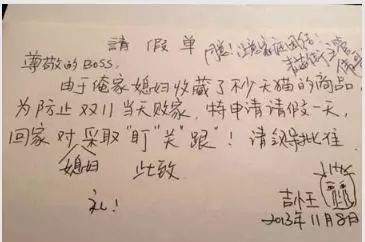 請假单
同意！注意家庭团结！
尊敬的BOSS,
由于俺家媳妇收藏了不少天猫的商品,
为防止双11当天败家,特申请请假一天,
回家对采取"盯""关""跟"!请领导批准
媳妇
此致
礼!
吉小王
2013年11月8日